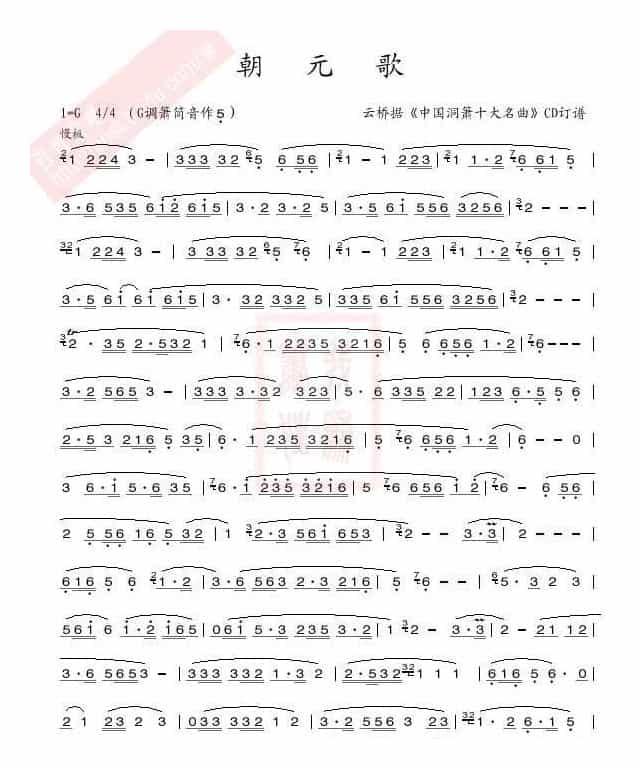 朝元歌
1=G 4/4 (G调箫筒音作5) 云桥据《中国洞箫十大名曲》CD订谱
慢板
21 224 3 - | 333 32 65 6 56 | 21 - 1 223 | 21 1·2 76 61 5 |
3·6 535 612 615 | 3·2 3·2 5 | 3·5 61 556 3256 | 32 - - - |
321 224 3 - | 3 333 32 65 76 | 21 - 1 223 | 21 1·2 76 61 5 |
3·5 61 61 615 | 3· 32 332 5 | 335 61 556 3256 | 32 - - - |
32· 35 2·532 1 | 76·1 2235 3216 | 5 6 656 1·2 | 76 - - - |
3·2 565 3 - | 333 3·32 323 | 5·6 335 22 | 123 6·5 56 |
2·5 3 216 5 35 | 6·1 235 3216 | 5 76 656 1·2 | 6 - - 0 |
3 6·1 5·6 35 | 76·1 235 3216 | 5 76 656 12 | 76 - 6 56 |
2 556 16 532 1 | 32·3 561 653 | 32 - - 3·3 | 2 - - - |
616 5 6 21·2 | 3·6 563 2·3 | 5·3 2·3 5 | 76 - - - |
561 6 1·2 165 | 061 5·3 235 3·2 | 1 32 - 3·3 | 2 - 21 12 |
3·6 5653 - | 333 332 1·3 2 | 2·532 321 1 1 | 616 5 6·0 |
2 1 223 2 | 033 332 12 2 | 3·2 556 3 23 | 2 26·1 5 |